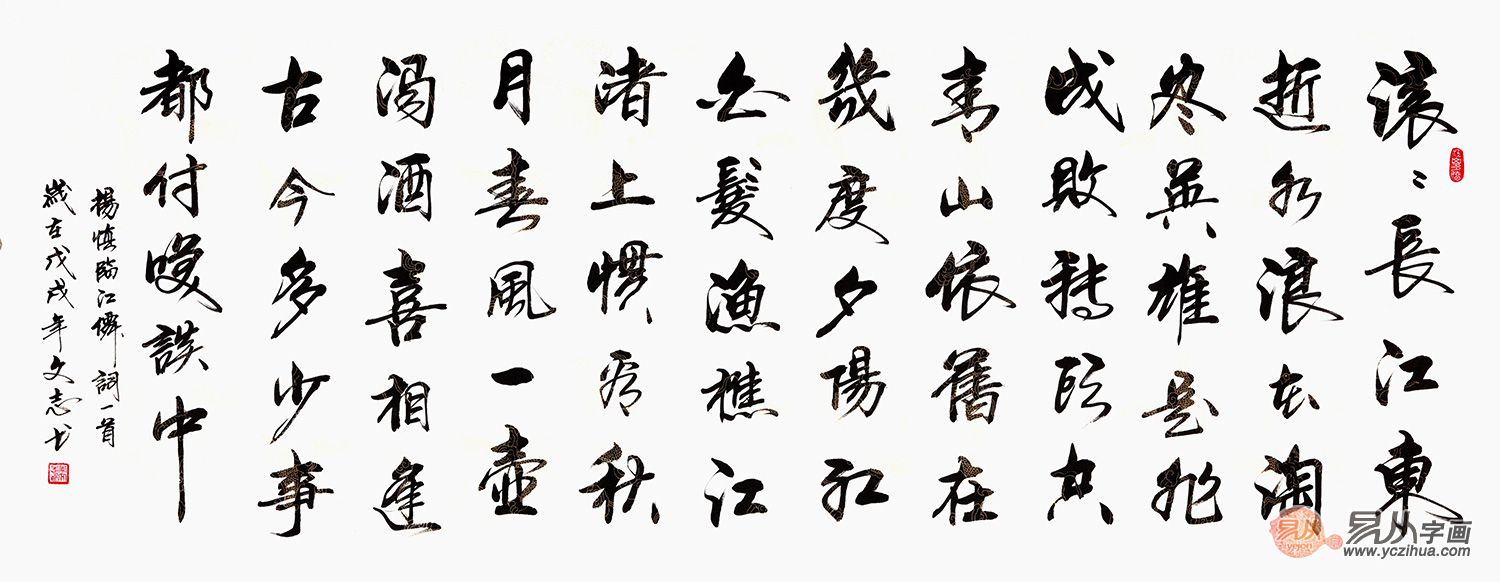 滚〻長江東
逝水浪花淘
尽英雄是非
成敗转頭空
青山依舊在
幾度夕陽红
白髮漁樵江
渚上慣看秋
月春風一壺
濁酒喜相逢
古今多少事
都付笑談中
楊慎臨江僊詞一首
歲在戊戌年文志书
易从
易从字画
www.yczihua.com